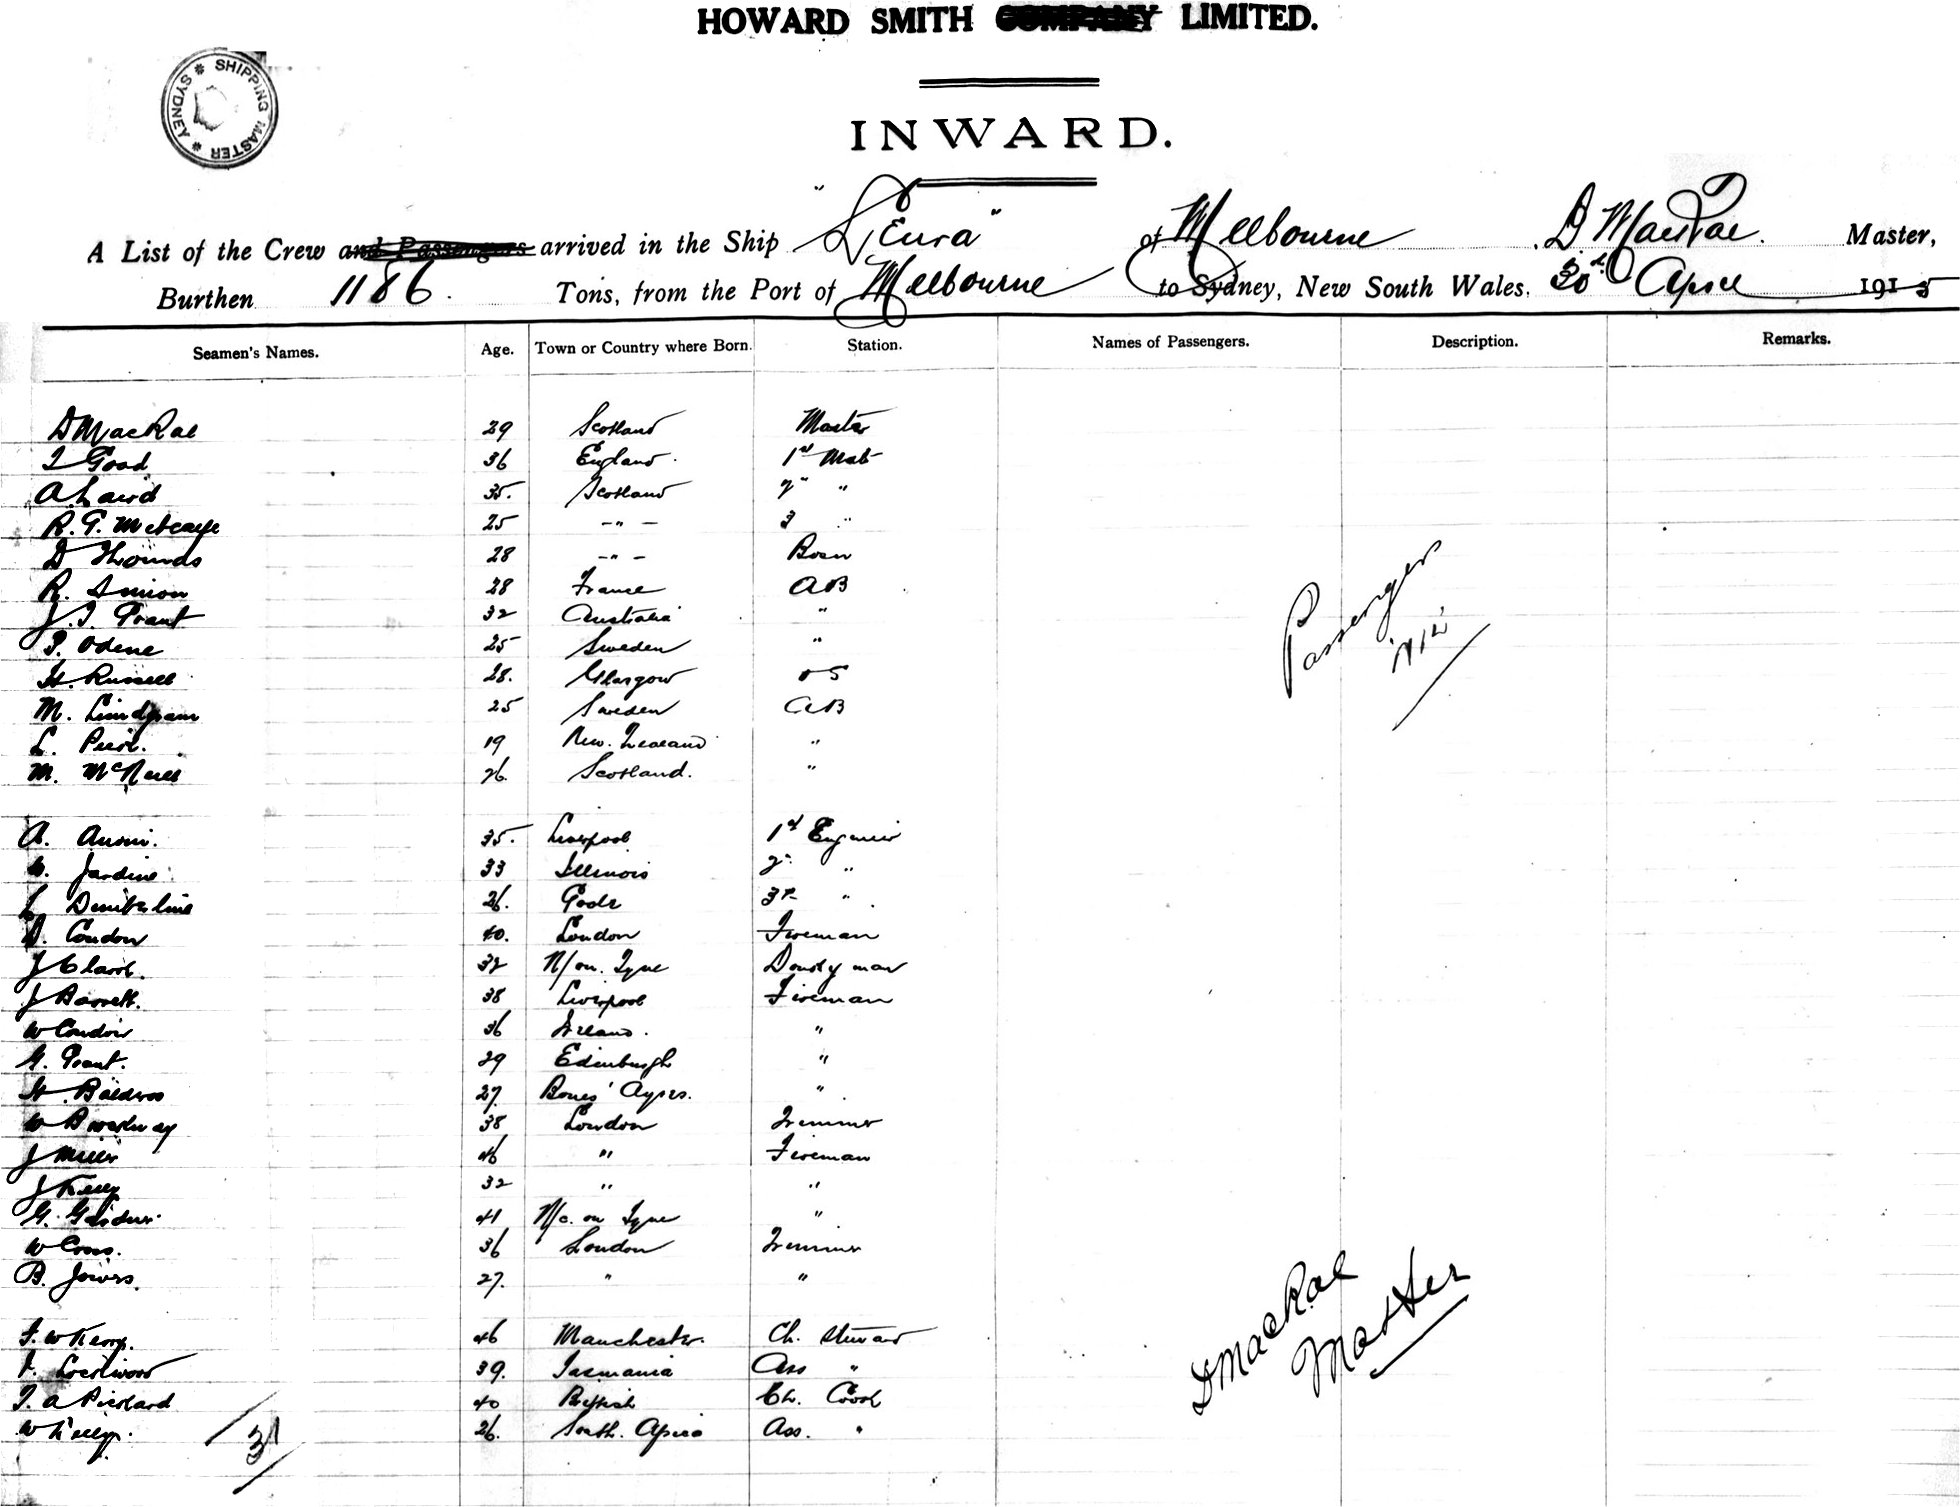 HOWARD SMITH COMPANY LIMITED.
SHIPPING MASTER SYDNEY
INWARD.
A List of the Crew and Passengers arrived in the Ship "Leura" of Melbourne D MacRae. Master,
Burthen 1186. Tons, from the Port of Melbourne to Sydney, New South Wales, 30th April 1915
Seamen's Names. Age. Town or Country where Born. Station. Names of Passengers. Description. Remarks.
D MacRae 29 Scotland Master
Good 36 England. 1st Mate
A. Laird 35. Scotland 2" "
R. G. Metcalfe 25 -"- 3 "
D 28 -"- Bosn
R. Simon 28 France AB
J. J. Grant 32 Australia "
P. Odene 25 Sweden "
H. Russell 28. Glasgow OS
M. 25 Sweden AB
L. 19 New. Zealand "
M. McNeill 26 Scotland. "
Passengers
Nil
A. 35. Liverpool 1st Engineer
Jardine 33 Illinois 2" "
26. 3rd "
D. Condon 40. London Fireman
J Clark. 32 N/on. Tyne man
J Barrett. 38 Liverpool Fireman
W Condon 36 Ireland. "
G. Grant. 29 Edinburgh "
H. 27. Ayres. "
W Broadway 38 London Trimmer
J Miller 46 " Fireman
J Kelly 32 " "
G. 41 N/c. on Tyne "
W Cross. 36 London Trimmer
B. 27. " "
F. W Kerry. 46 Manchester. Ch. Steward
F. Lockwood 39. Tasmania Ass "
T. A Pickard 40 British Ch. Cook
W Kelly. 26. South. Africa Ass. "
31
D MacRae
Master